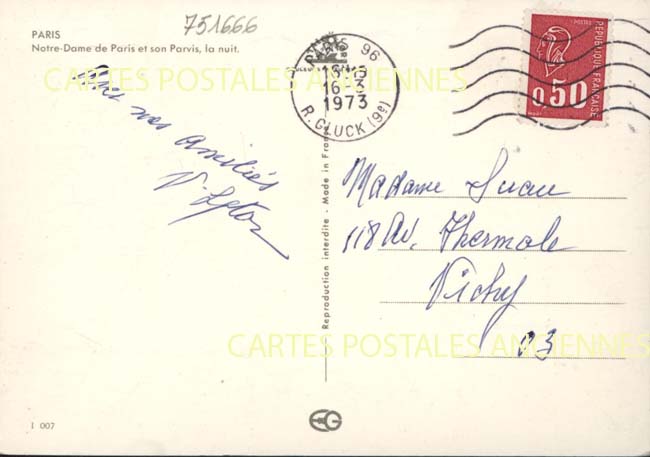 751666
PARIS
Notre-Dame de Paris et son Parvis, la nuit.
CARTES POSTALES ANCIENNES
nos Amitiés
PARIS 96
16-3
1973
R. GLUCK (9e)
POSTES
REPUBLIQUE FRANÇAISE
0,50
Reproduction interdite - Made in France
Madame
118 Av. Thermale
Vichy
03
CARTES POSTALES ANCIENNES
I 007